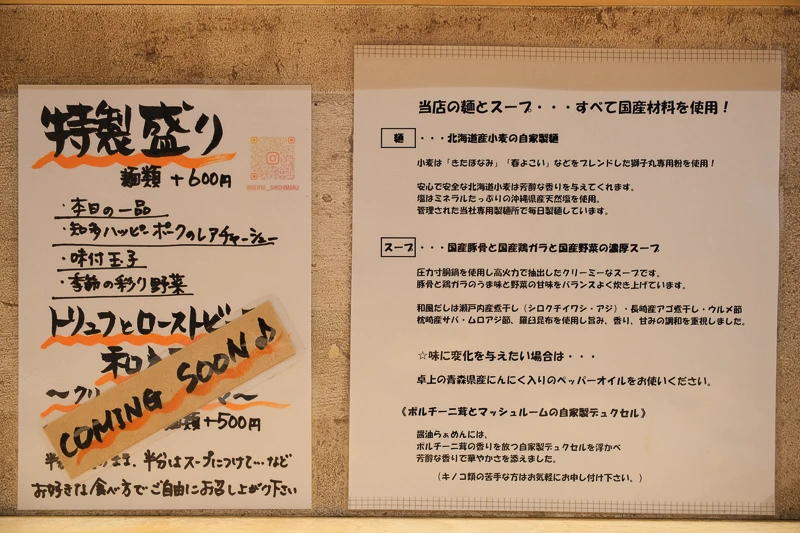 特製盛り
麺類 +600円
・本日の一品
・知多ハッピーポークのレアチャーシュー
・味付玉子
・季節の彩り野菜
トリュフとローストビ
和
COMING SOON♪
麺類+500円
半分はスープにつけて…など
お好きな食べ方でご自由にお召し上がり下さい
当店の麺とスープ・・・すべて国産材料を使用！
麺 ・・・北海道産小麦の自家製麺
小麦は「きたほなみ」「春よこい」などをブレンドした獅子丸専用粉を使用！
安心で安全な北海道小麦は芳醇な香りを与えてくれます。
塩はミネラルたっぷりの沖縄県産天然塩を使用。
管理された当社専用製麺所で毎日製麺しています。
スープ ・・・国産豚骨と国産鶏ガラと国産野菜の濃厚スープ
圧力寸胴鍋を使用し高火力で抽出したクリーミーなスープです。
豚骨と鶏ガラのうま味と野菜の甘味をバランスよく炊き上げています。
和風だしは瀬戸内産煮干し（シロクチイワシ・アジ）・長崎産アゴ煮干し・ウルメ節
枕崎産サバ・ムロアジ節、羅臼昆布を使用し旨み、香り、甘みの調和を重視しました。
☆味に変化を与えたい場合は・・・
卓上の青森県産にんにく入りのペッパーオイルをお使いください。
《ポルチーニ茸とマッシュルームの自家製デュクセル》
醤油らぁめんには、
ポルチーニ茸の香りを放つ自家製デュクセルを浮かべ
芳醇な香りで華やかさを添えました。
（キノコ類の苦手な方はお気軽にお申し付け下さい。）